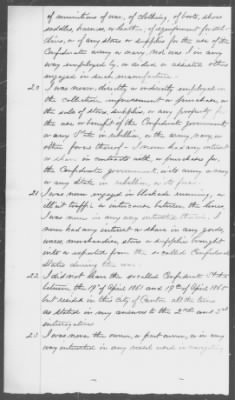 of munitions of war, of clothing, of boots, shoes
saddles, harness, or leather, of equipment for soldiers
or of any stores or supplies for the use of the
Confederate army or navy. Nor was I in any
way employed by, or aided or assisted others
engaged in such manufacture.
20 I was never directly or indirectly employed in
the collection impressment or purchase, or
the sale of stores, supplies, or any property for
the use or benefit of the Confederate government,
or any State in rebellion, or the army, navy or
other forces thereof. I never had any interest
or share in contracts with, or purchases for,
the Confederate government, or its army or navy
or any State in rebellion, or its forces.
21 I was never engaged in blockade running, or
illicit traffic or intercourse between the lines
I was never in any way interested therein. I
never had any interest or share in any goods,
wares, merchandise, stores or supplies brought
into or exported from the so called Confederate
States during the war.
22 I did not leave the so called Confederate States
between the 19th of April 1861 and 19th of April 1865
but resided in this City of Canton all the time
as stated in my answers to the 2nd and 3rd
interrogatories
23 I was never the owner, or part owner, or in any
way interested in any vessel used in navigating